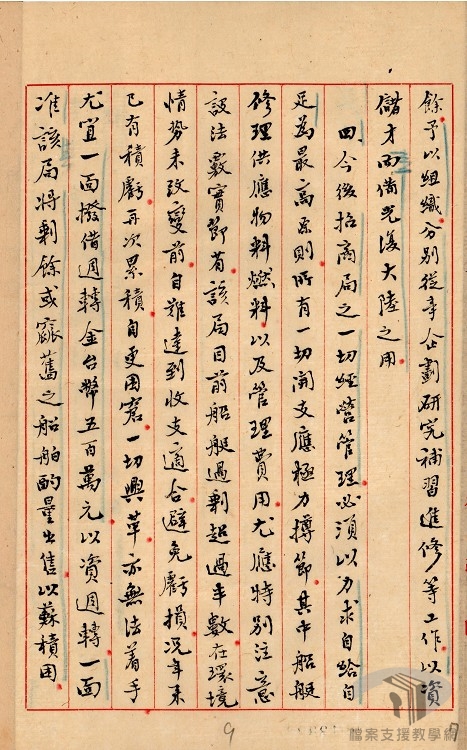 餘予以組織分別從事企劃研究補習進修等工作以資
儲才而備光復大陸之用
四今後招商局之一切經營管理必須以力求自給自
足為最高原則所有一切開支應極力撙節其中船艇
修理供應物料燃料以及管理費用尤應特別注意
設法覈實節省該局目前船艇過剩超過半數在環境
情勢未改變前自難達到收支適合避免虧損況年來
已有積虧再次累積自更困窘一切興革亦無法着手
尤宜一面撥借週轉金台幣五百萬元以資週轉一面
准該局將剩餘或窳舊之船舶酌量出售以蘇積困
9
檔案支援教學網